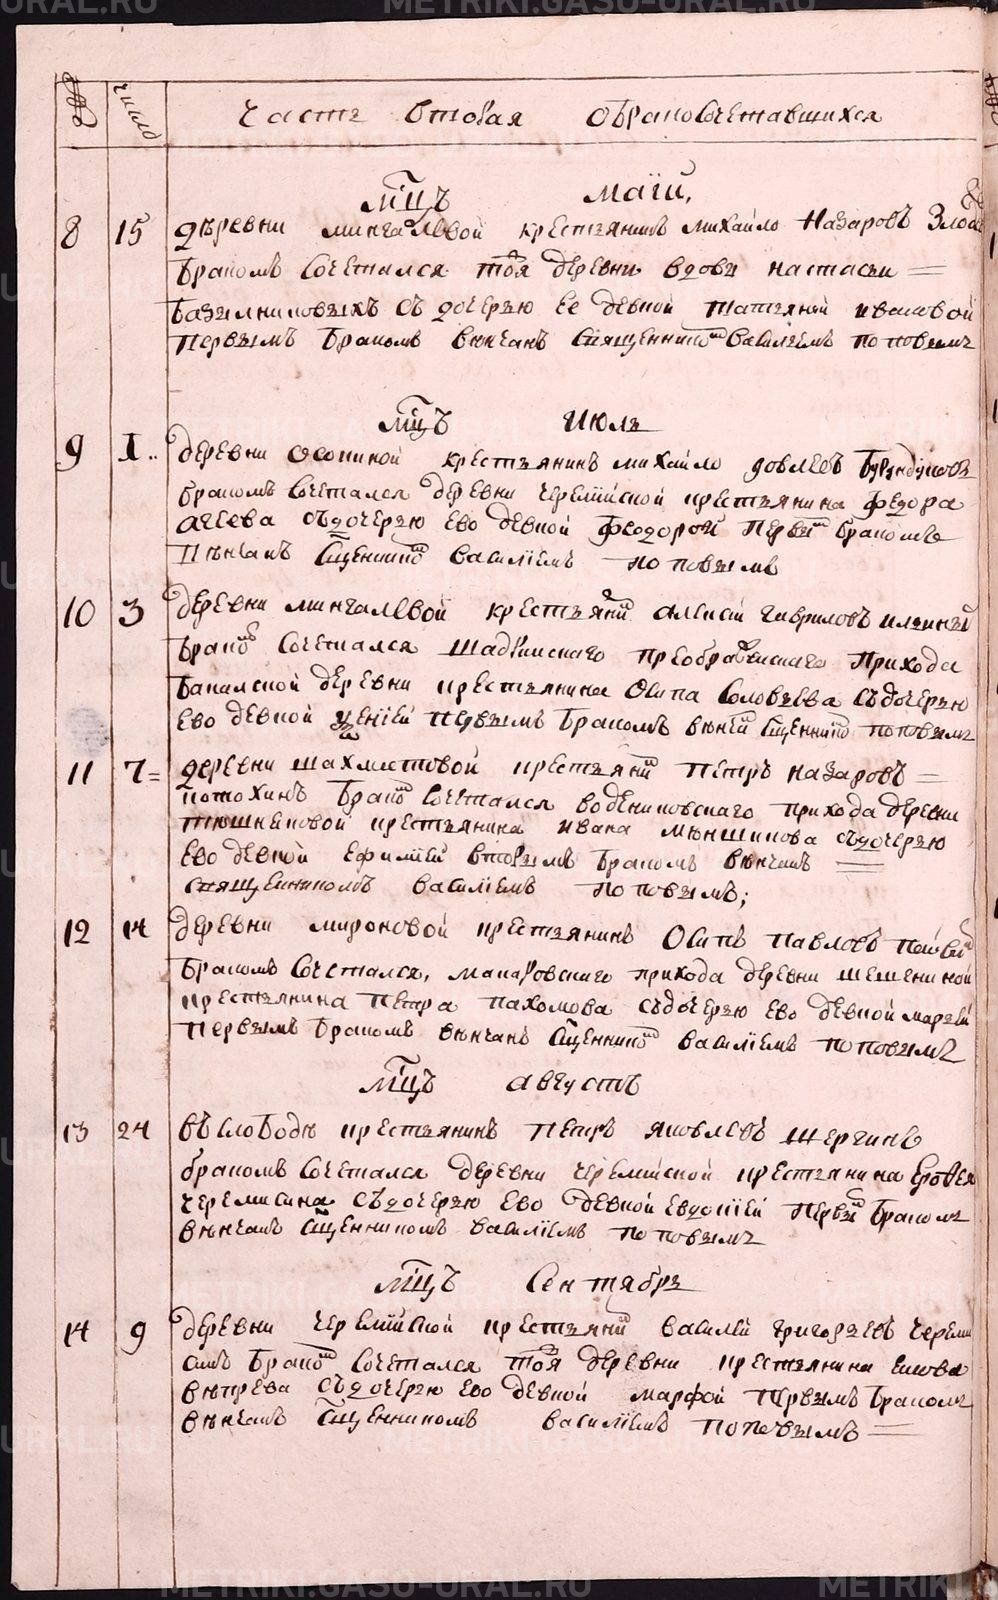 METRIKI.GASU-URAL.RU
число
Часть вторая обракосочетавшихся
мцъ маїи,
8 15 дѣревни мингалѣвой крестьянинъ михайло Назаровъ
бракомъ сочетался тоя деревни вдовы настасьи =
съ дочерью ее девкой татьяной ивановой
первымъ бракомъ вѣнчанъ священникомъ василіемъ поповымъ
мцъ Июль
9 1.. деревни осокиной крестьянинъ михайло
бракомъ сочетался деревни черемиской крестьянина федора
агеева съдочерью ево девкой феодорой первы бракомъ
вѣнчанъ сщенникомъ василіемъ поповымъ
10 3 деревни мингалевой крестьяни алексей гавриловъ ильиныхъ
бракомъ сочетался шадринскаго преображенскаго прихода
деревни крестьянина осипа соловьева съдочерью
ево девкой первымъ бракомъ сщенникомъ поповымъ
11 7= деревни шахматовой крестьяни петръ назаровъ =
потохинъ бракомъ сочетался воденниковскаго прихода деревни
тюшняковой крестьянина ивана меншикова съдочерью
ево девкой ефиміей вторымъ бракомъ вѣнчанъ =
священникомъ василіемъ поповымъ;
12 14 деревни мироновой крестьянинъ осипъ павловъ
бракомъ сочетался, макаровскаго прихода деревни шешениной
крестьянина петра пахомова съдочерью ево девкой марьей
первымъ бракомъ вѣнчанъ сщенникомъ василіемъ поповымъ
мцъ августъ
13 24 въ слободѣ крестьянинъ петръ яковлевъ шергинъ
бракомъ сочетался деревни черемиской крестьянина ерофея
черемисина съдочерью ево девкой евдокіей первы бракомъ
вѣнчанъ сщенникомъ василіемъ поповымъ
мцъ Сентябрь
14 9 деревни черемиской крестьяни василей григорьевъ череми
синъ бракомъ сочетался тоя деревни крестьянина
съдочерью ево девкой марфой первымъ бракомъ
вѣнчанъ сщенникомъ василіемъ поповымъ =
METRIKI.GASU-URAL.RU